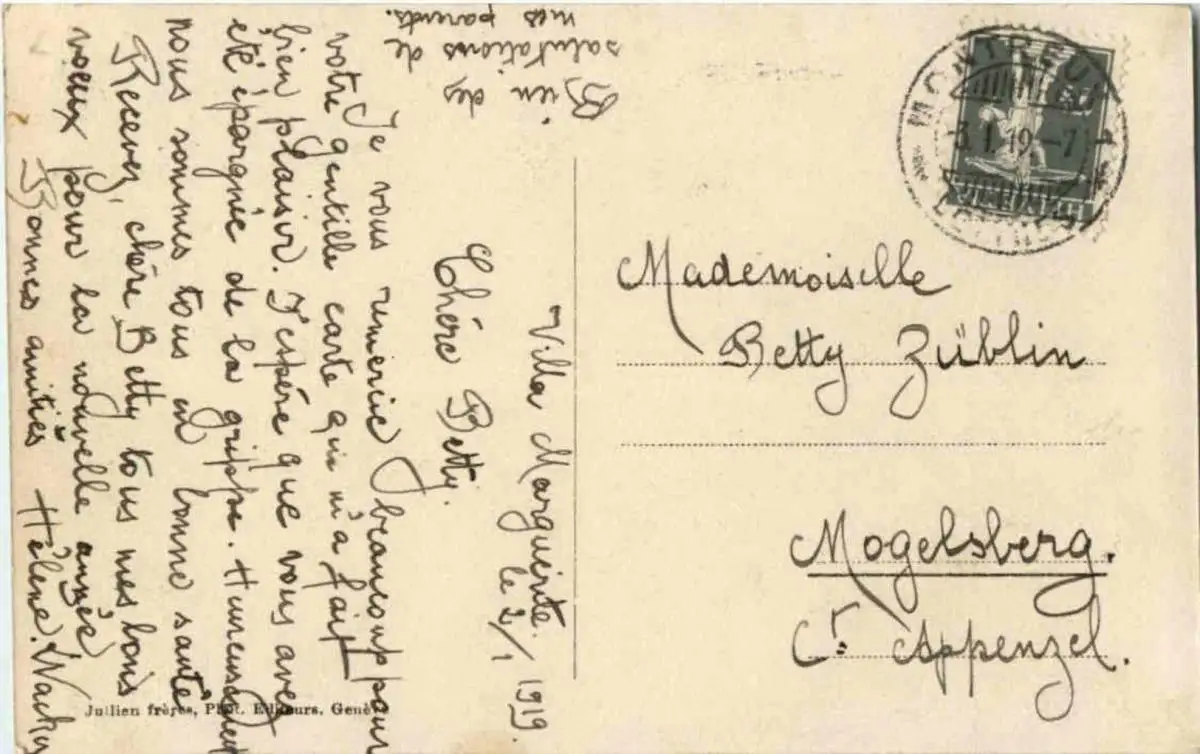 Villa Marguerite.
le 2/1 1919.
Chère Betty.
Je vous remercie beaucoup pour
votre gentille carte qui m'a fait
bien plaisir. J'espère que vous avez
été épargnée de la grippe. Heureusement
nous sommes tous en bonne santé
Recevez, chère Betty tous mes bons
voeux pour la nouvelle année
Bonnes amitiés Hélène.
Bien des
salutations de
mes parents.
MONTREUX
3.1.19-7
Mademoiselle
Betty Züblin
Mogelsberg.
Ct. Appenzel.
Jullien frères, Phot. Editeurs, Genève